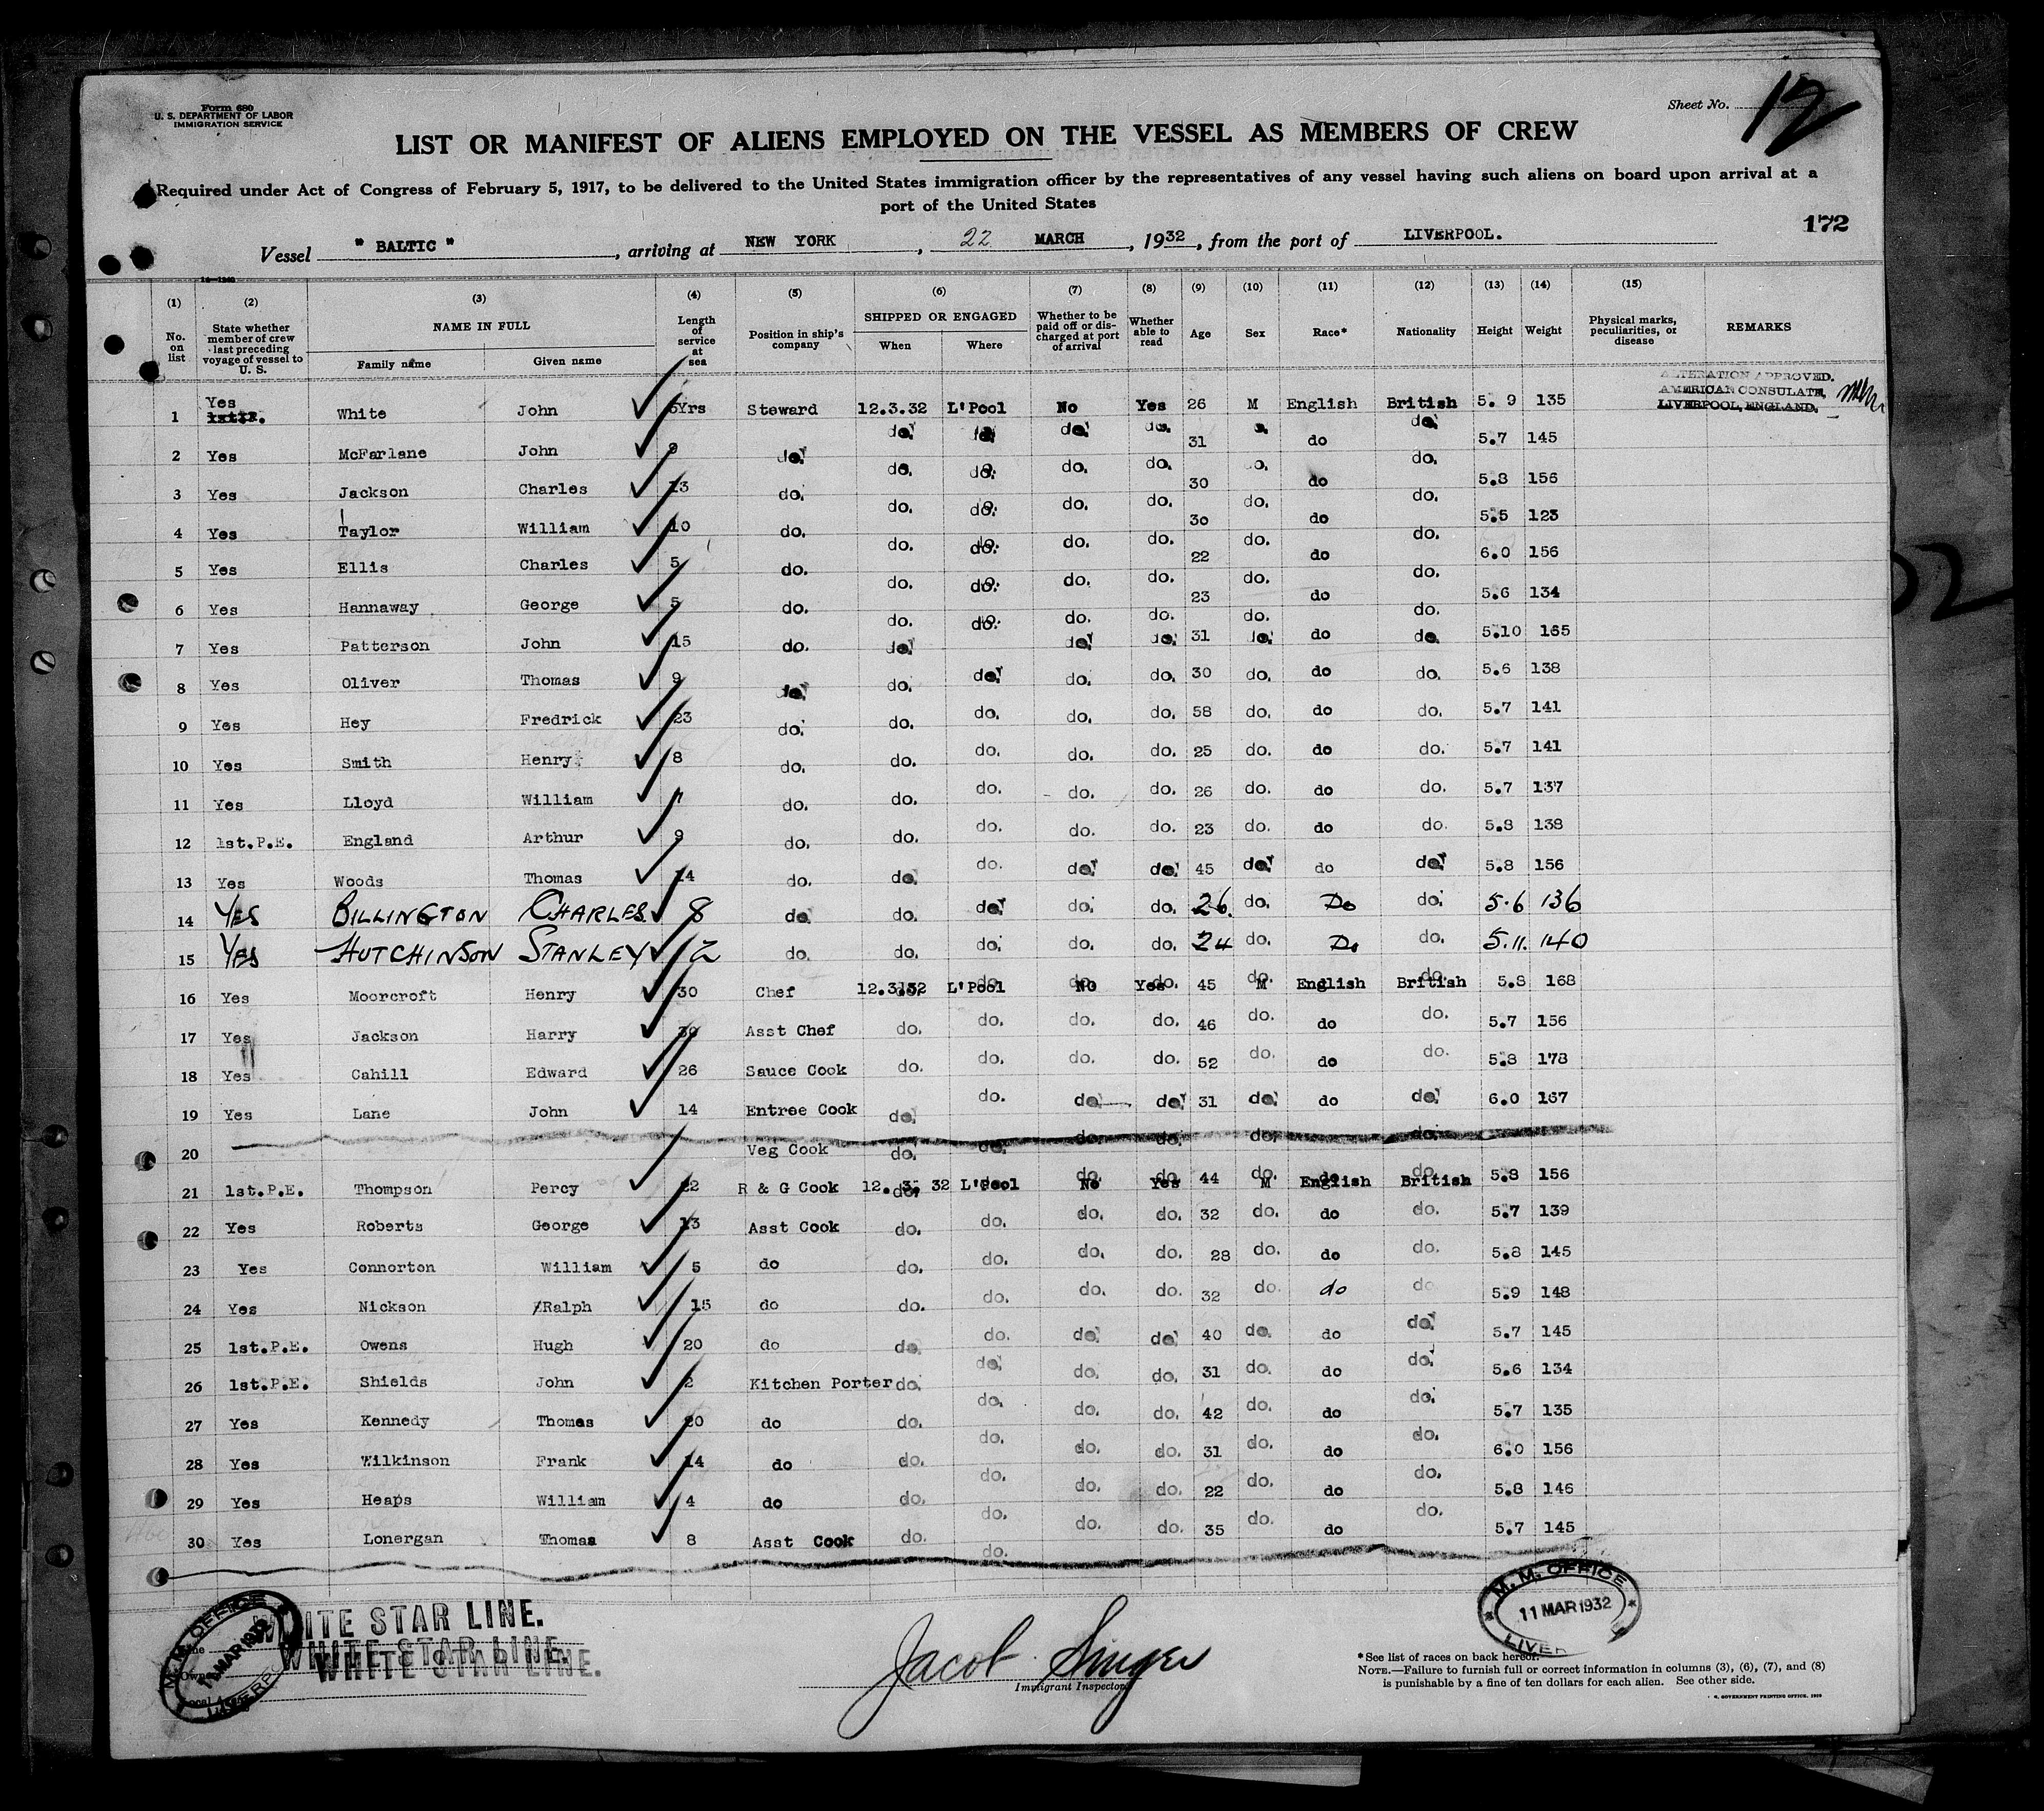 Form 680
U. S. DEPARTMENT OF LABOR
IMMIGRATION SERVICE
Sheet No. 12
LIST OR MANIFEST OF ALIENS EMPLOYED ON THE VESSEL AS MEMBERS OF CREW
Required under Act of Congress of February 5, 1917, to be delivered to the United States immigration officer by the representatives of any vessel having such aliens on board upon arrival at a
port of the United States
172
Vessel " BALTIC ", arriving at NEW YORK, 22 MARCH, 1932, from the port of LIVERPOOL.
(1) (2) (3) (4) (5) (6) (7) (8) (9) (10) (11) (12) (13) (14) (15)
No. on list State whether member of crew last preceding voyage of vessel to U. S. NAME IN FULL Family name Given name Length of service at sea Position in ship's company SHIPPED OR ENGAGED When Where Whether to be paid off or discharged at port of arrival Whether able to read Age Sex Race* Nationality Height Weight Physical marks, peculiarities, or disease REMARKS
ALTERATION APPROVED.
AMERICAN CONSULATE,
LIVERPOOL, ENGLAND.
1 Yes White John 5Yrs Steward 12.3.32 L'Pool No Yes 26 M English British 5.9 135
2 Yes McFarlane John 9 do. do. do. do. do. 31 do do. 5.7 145
3 Yes Jackson Charles 13 do. do. do. do. do. 30 do. do do. 5.8 156
4 Yes Taylor William 10 do. do. do. do. do. 30 do. do do. 5.5 123
5 Yes Ellis Charles 5 do. do. do. do. do. 22 do. do do. 6.0 156
6 Yes Hannaway George 5 do. do. do. do. do. 23 do. do do. 5.6 134
7 Yes Patterson John 15 do. do. do. do. do. 31 do. do do. 5.10 165
8 Yes Oliver Thomas 9 do. do. do. do. do. 30 do. do do. 5.6 138
9 Yes Hey Fredrick 23 do. do. do. do. do. 58 do. do do. 5.7 141
10 Yes Smith Henry 8 do. do. do. do. do. 25 do. do do. 5.7 141
11 Yes Lloyd William 7 do. do. do. do. do. 26 do. do do. 5.7 137
12 1st.P.E. England Arthur 9 do. do. do. do. do. 23 do. do do. 5.8 138
13 Yes Woods Thomas 14 do. do. do. do. do. 45 do. do do. 5.8 156
14 YES BILLINGTON CHARLES 8 do. do. do. do. do. 26. do. Do do. 5.6 136
15 YES HUTCHINSON STANLEY 2 do. do. do. do. do. 24 do. Do do. 5.11. 140
16 Yes Moorcroft Henry 30 Chef 12.3.32 L'Pool NO Yes 45 M English British 5.8 168
17 Yes Jackson Harry 30 Asst Chef do. do. do. do. 46 do. do do. 5.7 156
18 Yes Cahill Edward 26 Sauce Cook do. do. do. do. 52 do. do do. 5.8 178
19 Yes Lane John 14 Entree Cook do. do. do. do. 31 do. do do. 6.0 167
20 Veg Cook do. do. do. do. do. do.
21 1st.P.E. Thompson Percy 22 R & G Cook 12. 3. 32 L'Pool No Yes 44 M English British 5.8 156
22 Yes Roberts George 13 Asst Cook do. do. do. do. 32 do. do do. 5.7 139
23 Yes Connorton William 5 do do. do. do. do. 28 do. do do. 5.8 145
24 Yes Nickson Ralph 15 do do. do. do. do. 32 do. do do 5.9 148
25 1st.P.E. Owens Hugh 20 do do. do. do. do. 40 do. do do. 5.7 145
26 1st.P.E. Shields John 2 Kitchen Porter do. do. do. do. 31 do. do do. 5.6 134
27 Yes Kennedy Thomas 20 do do. do. do. do. 42 do. do do. 5.7 135
28 Yes Wilkinson Frank 14 do do. do. do. do. 31 do. do do. 6.0 156
29 Yes Heaps William 4 do do. do. do. do. 22 do. do do. 5.8 146
30 Yes Lonergan Thomas 8 Asst Cook do. do. do. do. 35 do. do do. 5.7 145
M. M. OFFICE
11 MAR 1932
WHITE STAR LINE.
WHITE STAR LINE.
WHITE STAR LINE.
Jacob Singer
Immigrant Inspector
M. M. OFFICE
11 MAR 1932
*See list of races on back hereof.
NOTE.—Failure to furnish full or correct information in columns (3), (6), (7), and (8)
is punishable by a fine of ten dollars for each alien. See other side.